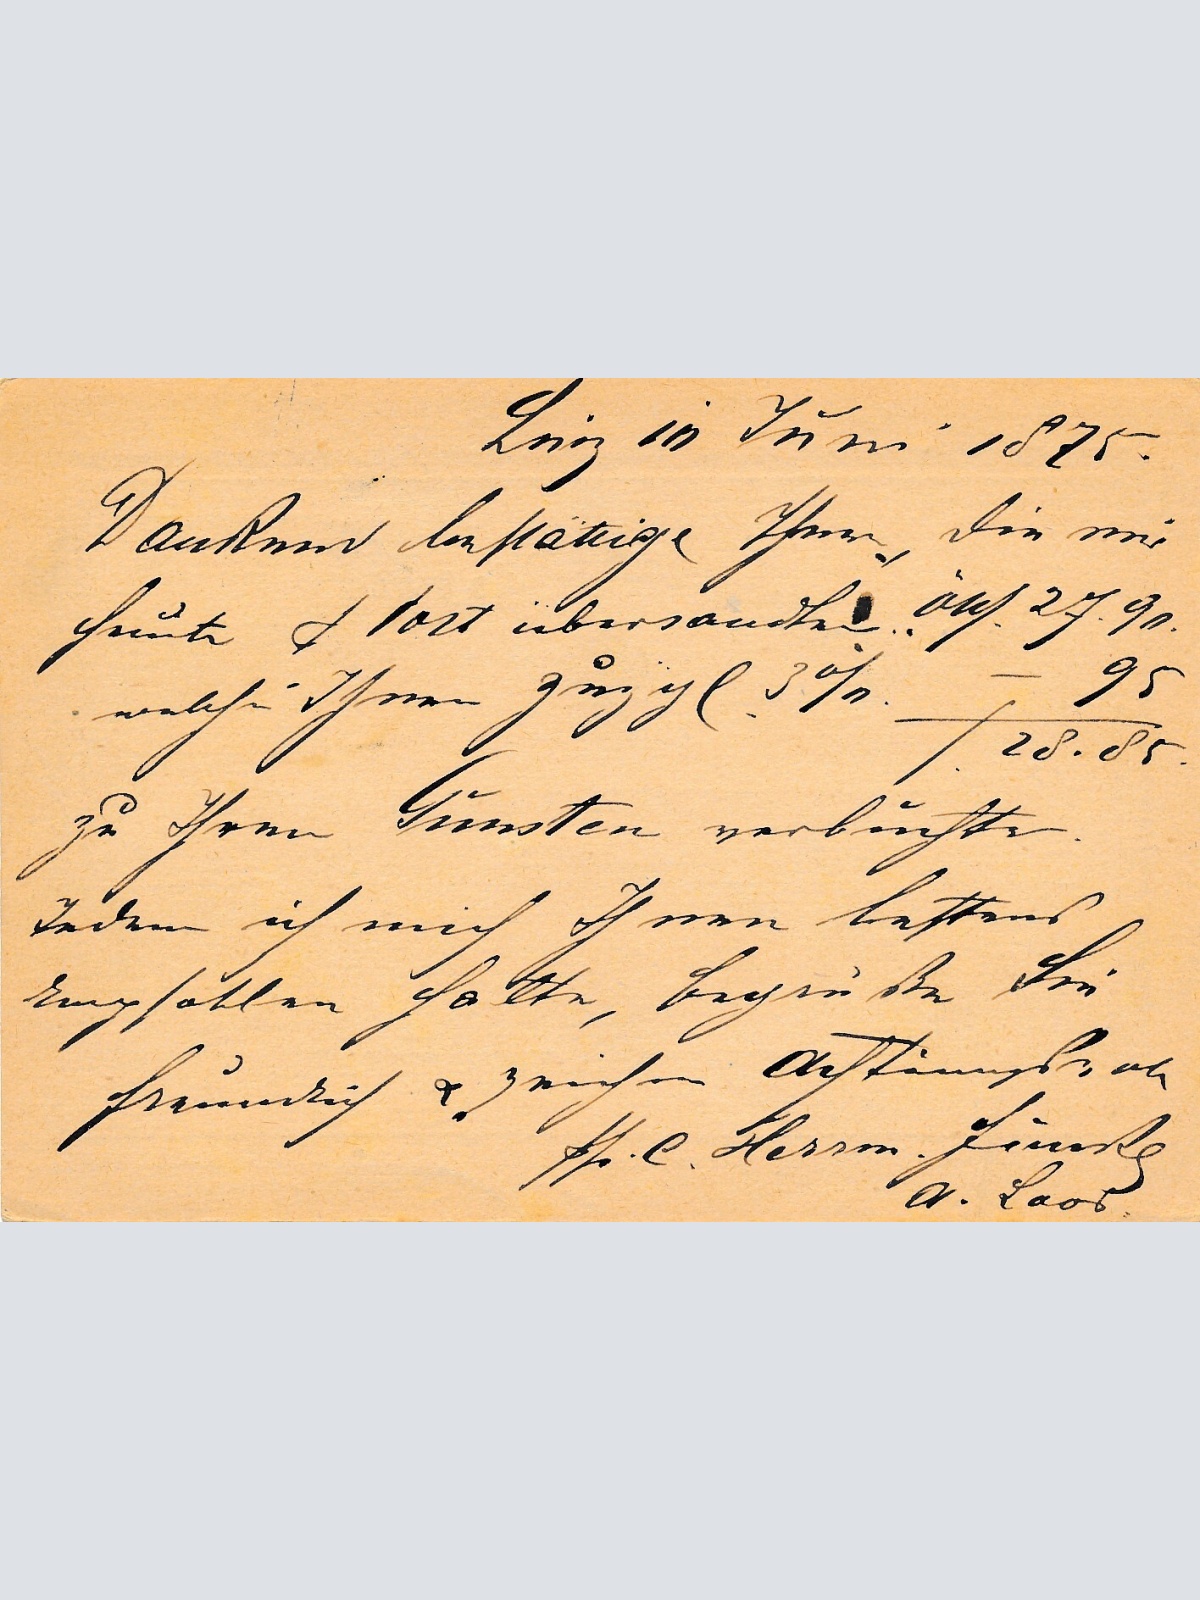 Linz in Juni 1875.
Dankend bestättige Ihnen, die mir
heute & Post übersandten öW f. 27. 90.
welche Ihnen zuzügl. 3 %. — 95
f. 28. 85.
zu Ihren Gunsten verbuchte.
Indem ich mich Ihnen bestens
empfohlen halte, begrüße Sie
freundlich & zeichne Achtungsvoll
pp. C. Herrm.
A. Laos